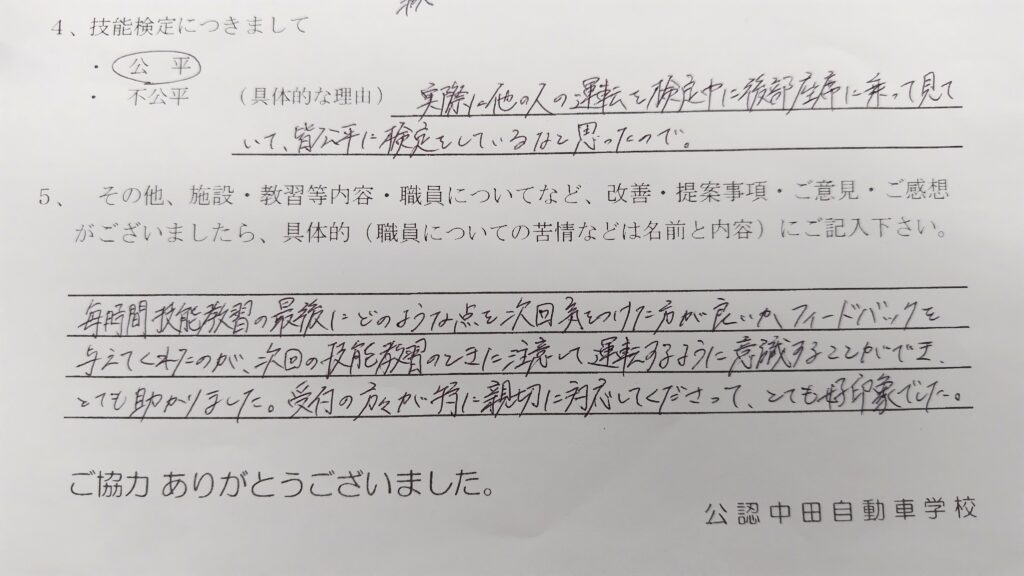 4、技能検定につきまして
・ 公 平
・ 不公平 (具体的な理由) 実際に他の人の運転を検定中に後部座席に乗って見て
いて、皆公平に検定をしているなと思ったので。
5、 その他、施設・教習等内容・職員についてなど、改善・提案事項・ご意見・ご感想
がございましたら、具体的(職員についての苦情などは名前と内容)にご記入下さい。
毎時間技能教習の最後にどのような点を次回気をつけた方が良いか、フィードバックを
与えてくれたのが、次回の技能教習のときに注意して運転するように意識することができ、
とても助かりました。受付の方々が特に親切に対応してくださって、とても好印象でした。
ご協力 ありがとうございました。
公認中田自動車学校